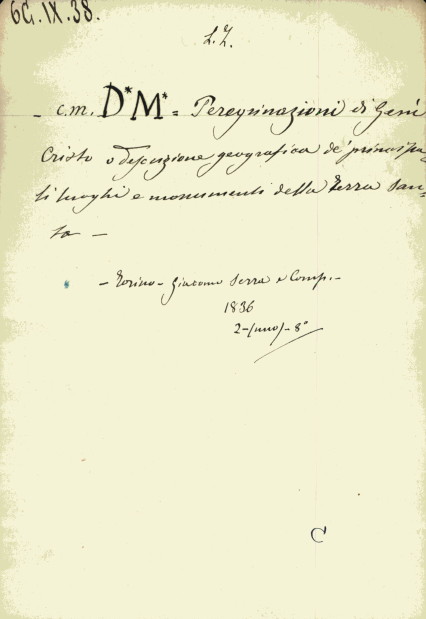 6G.IX.38.
L.Z.
- C.M. D*M* = Peregrinazioni di Gesù
Cristo o descrizione geografica de' principa-
li luoghi e monumenti della terra san-
ta -
- Torino - Giacomo Serra e Comp. -
1836
2-(uno)-8°
C